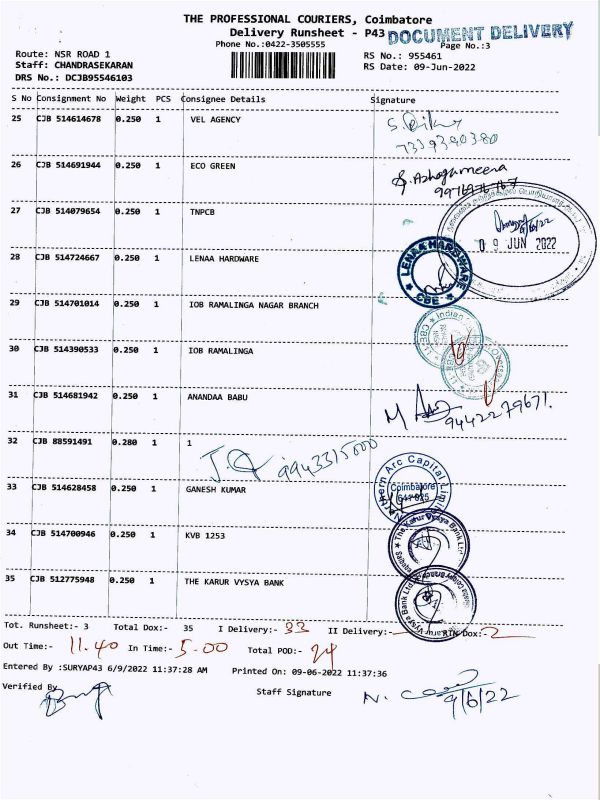 THE PROFESSIONAL COURIERS, Coimbatore
Delivery Runsheet - P43
DOCUMENT DELIVERY
Phone No.:0422-3505555
Page No.:3
Route: NSR ROAD 1
RS No.: 955461
Staff: CHANDRASEKARAN
RS Date: 09-Jun-2022
DRS No.: DCJB95546103
S No Consignment No Weight PCS Consignee Details Signature
25 CJB 514614678 0.250 1 VEL AGENCY
7339390380
26 CJB 514691944 0.250 1 ECO GREEN
S. Azhagumeena
9976976767
27 CJB 514079654 0.250 1 TNPCB
9/6/22
09 JUN 2022
28 CJB 514724667 0.250 1 LENAA HARDWARE
LENAA HARDWARE
CBE
29 CJB 514701014 0.250 1 IOB RAMALINGA NAGAR BRANCH
Indian
30 CJB 514390533 0.250 1 IOB RAMALINGA
31 CJB 514681942 0.250 1 ANANDAA BABU
9442279671.
32 CJB 88591491 0.280 1 1
9943315000
Northern Arc Capital Limi
Coimbatore
641 025
33 CJB 514628458 0.250 1 GANESH KUMAR
34 CJB 514700946 0.250 1 KVB 1253
The Karur Vysya Bank Ltd
35 CJB 512775948 0.250 1 THE KARUR VYSYA BANK
Tot. Runsheet:- 3 Total Dox:- 35 I Delivery:- 33 II Delivery:- RTN Dox:- 2
Out Time:- 11.40 In Time:- 5.00 Total POD:- 24
Entered By :SURYAP43 6/9/2022 11:37:28 AM Printed On: 09-06-2022 11:37:36
Verified By
Staff Signature
9/6/22